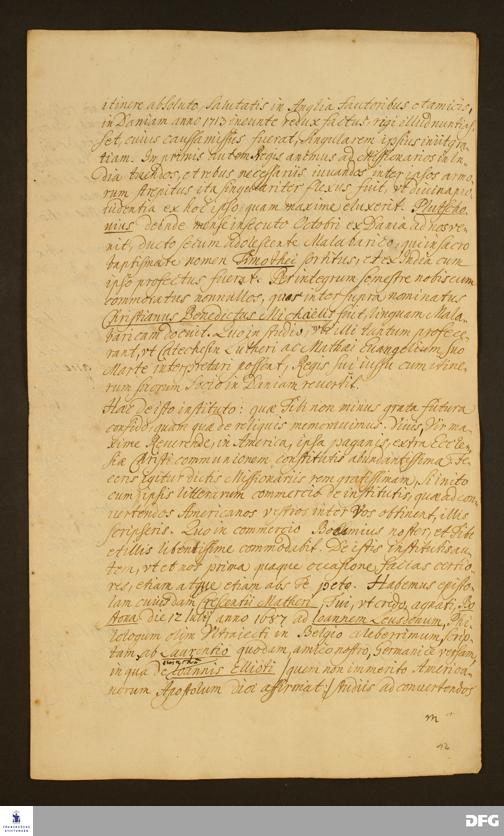 itinere absoluto, salutatis in Anglia fautoribus et amicis,
in Daniam anno 1713 ineunte redux factus: regi illud nuntias-
set, cuius caussa missus fuerat, singularem ipsius iniit gra-
tiam. In primis autem Regis animus ad Missionarios in In-
dia tuendos, et rebus necessariis iuvandos inter ipsos armo-
rum strepitus ita singulariter flexus fuit, vt divina pro-
videntia ex hoc ipso quam maxime eluxerit. Plutscho-
vius deinde mense insecuto Octobri ex Dania ad nos ve-
nit, ducto secum adolescente Malabarico, qui in sacro
baptismate nomen Timothei sortitus, et ex India cum
ipso profectus fuerat. Per integrum semestre nobiscum
commoratus nonnullos, quos inter supra nominatus
Christianus Benedictus Michaelis fuit, linguam Mala-
baricam docuit. Quo in studio, vt illi tantum profece-
rant, vt Catechesin Lutheri ac Mathaei Euangelium suo
Marte interpretari possent, Regis sui iussu cum itine-
rum suorum Socio in Daniam revertit.
Haec de isto instituto: quae Tibi non minus grata futura
confido, quam quae de reliquis memoravimus. Quis Vir ma-
xime Reverende, in America, ipsa paganis, extra Eccle-
siae Christi communionem constitutis abundantissima. Fe-
ceris igitur dictis Missionariis rem gratissimam, si inito
cum ipsis litterarum commercio de institutis, quae ad con-
vertendos Americanos vestros inter Vos obtinent, illis
scripseris. Quo in commercio Boehmius noster, et Tibi
et illis libentissime commodabit. De istis institutis au-
tem, vt et nos prima quaque occasione facias certio-
res, etiam atque etiam abs Te peto. Habemus episto-
lam cuiusdam Crescentii Matheri, Tui, vt credo, agnati, Bo-
stonae die 12 Iulii anno 1687 ad Ioannem Leusdenum, Phi-
lologum olim Vltraiecti in Belgio celeberrimum, scrip-
tam, ab Laurentio quodam, amico nostro, Germanice versam,
in qua de Ioannis Ellioti /: quem non immerito America-
norum Apostolum dici affirmat :/ studiis ad convertendos
m
42
FRANCKESCHE
STIFTUNGEN
DFG